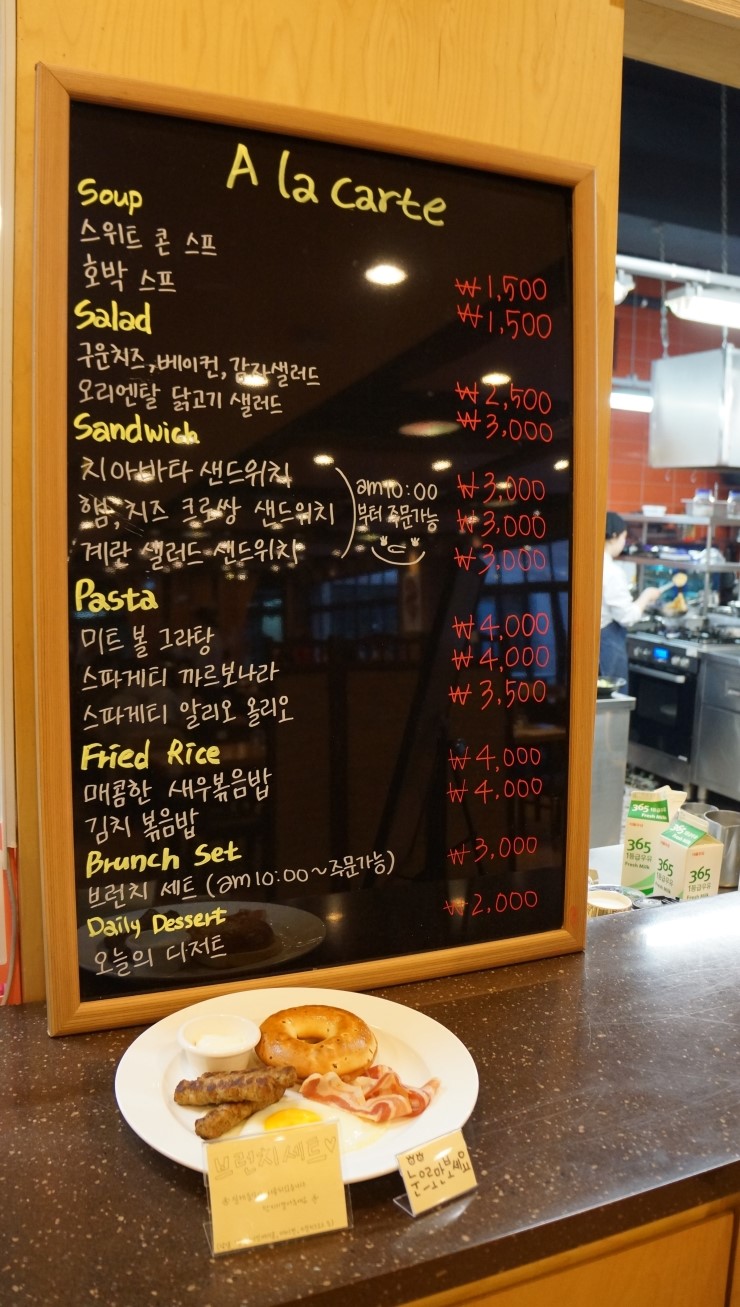 A la carte
Soup
스위트 콘 스프 ₩1,500
호박 스프 ₩1,500
Salad
구운치즈,베이컨,감자샐러드 ₩2,500
오리엔탈 닭고기 샐러드 ₩3,000
Sandwich
치아바타 샌드위치 ₩3,000
햄,치즈 크로쌍 샌드위치 ₩3,000
계란 샐러드 샌드위치 ₩3,000
am10:00
부터 주문가능
Pasta
미트볼 그라탕 ₩4,000
스파게티 까르보나라 ₩4,000
스파게티 알리오 올리오 ₩3,500
Fried Rice
매콤한 새우볶음밥 ₩4,000
김치 볶음밥 ₩4,000
Brunch Set
브런치 세트 (am10:00~주문가능) ₩3,000
Daily Dessert
오늘의 디저트 ₩2,000
365
Fresh Milk
365
1등급우유
Fresh Milk
365
1등급우유
365
1등급우유
Fresh Milk
브런치세트♡
눈으로만보세요